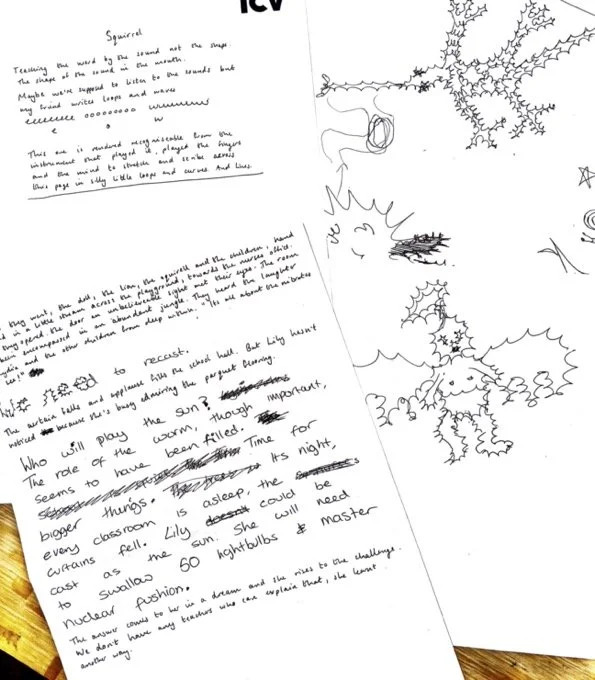 ICV
Squirrel
Teaching the word by the sound not the shape.
The shape of the sound in the mouth.
Maybe we're supposed to listen to the sounds but
my friend writes loops and waves
eeeeeeee ooooooooo wwwwwww
e o w
This one is rendered recogniseable from the
instrument that played it, played the fingers
and the mind to stretch and scribe across
this page in silly little loops and curves. And lines.
they went, the doll, the lion, the squirrell and the children, hand
in a little stream across the playground, towards the nurses office.
they opened the door an unbelieveable sight met their eyes. The room
been encompassed in an abundant jungle. They heard the laughter
and the other children from deep within. "Its all about the
to recast.
The curtain falls and applause fills the school hall. But Lily hasn't
noticed because she's busy admiring the parquet flooring.
Who will play the sun?
The role of the worm, though important,
seems to have been filled.
bigger things. Time for
every classroom is asleep, the Its night,
curtains fell. Lily could be
cast as the sun. She will need
to swallow 50 lightbulbs & master
nuclear fushion.
The answer comes to her in a dream and she rises to the challenge.
We don't have any teachers who can explain that, she learnt
another way.